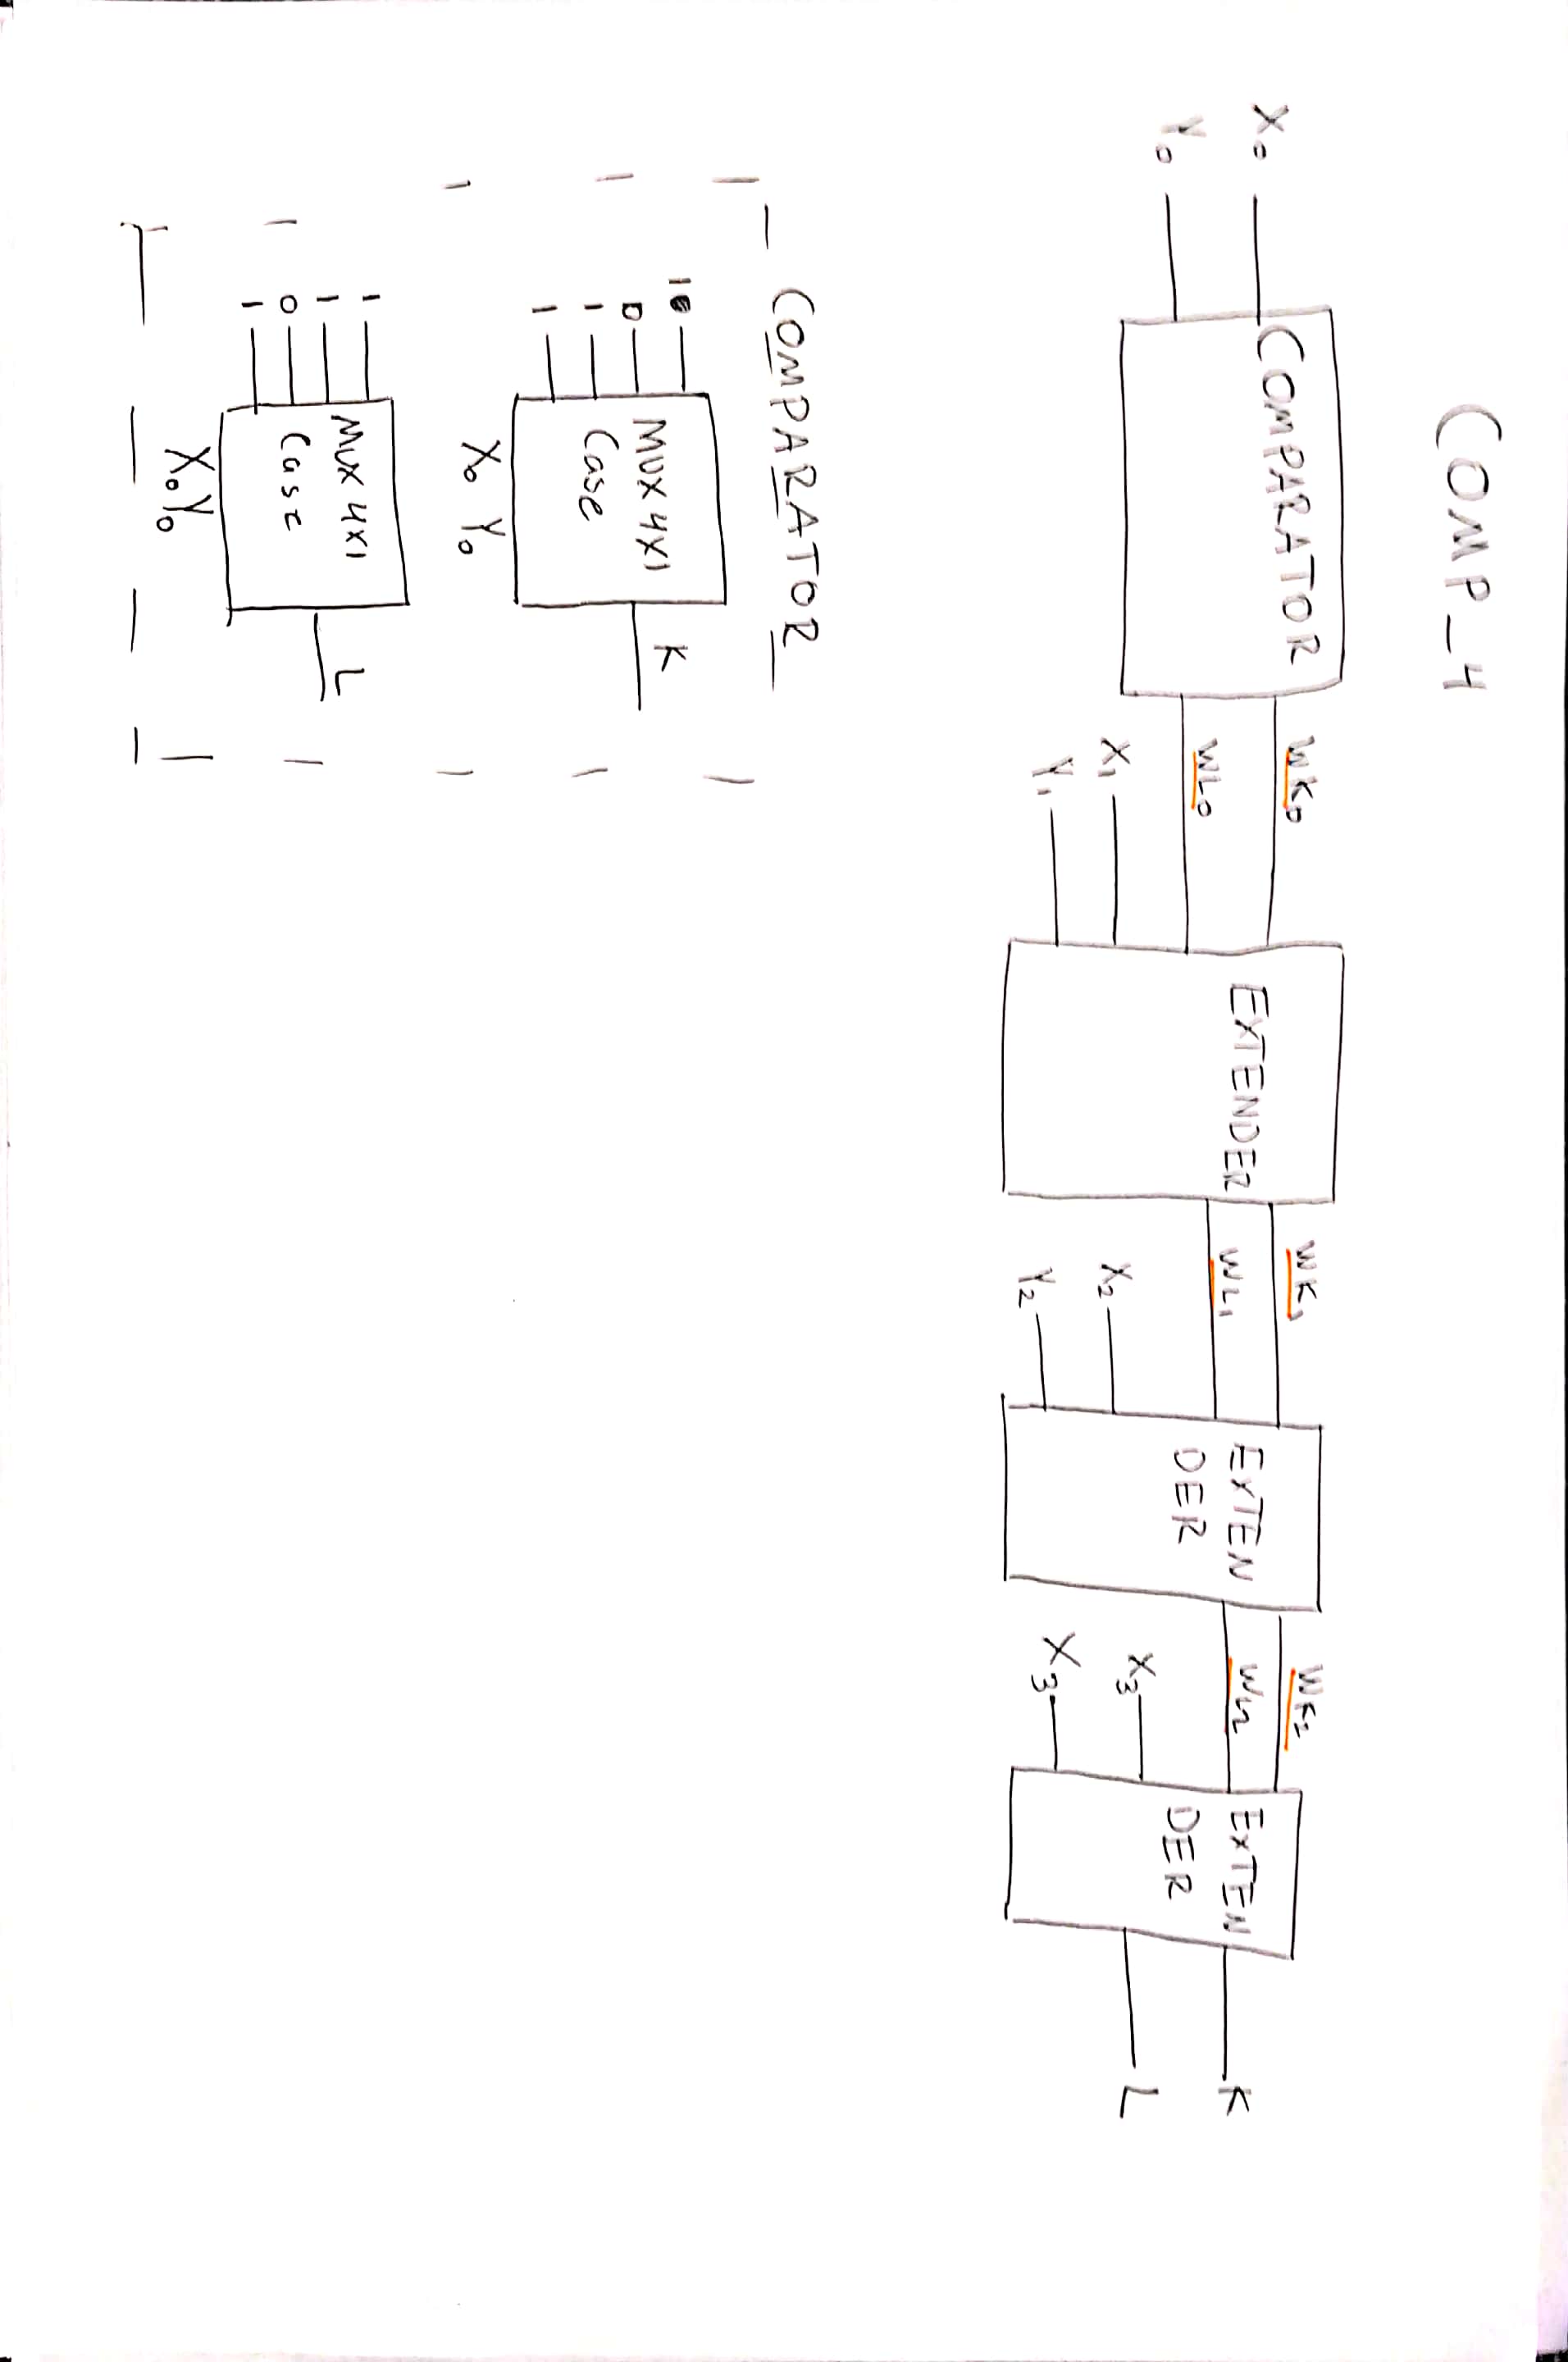 COMP_4
X0
Y0
COMPARATOR
WK0
WL0
X1
Y1
EXTENDER
WK1
WL1
X2
Y2
EXTEN
DER
WK2
WL2
X3
X3
EXTEN
DER
K
L
COMPARATOR
1
0
1
1
MUX 4X1
Case
X0 Y0
K
1
1
0
1
MUX 4X1
Case
X0 Y0
L